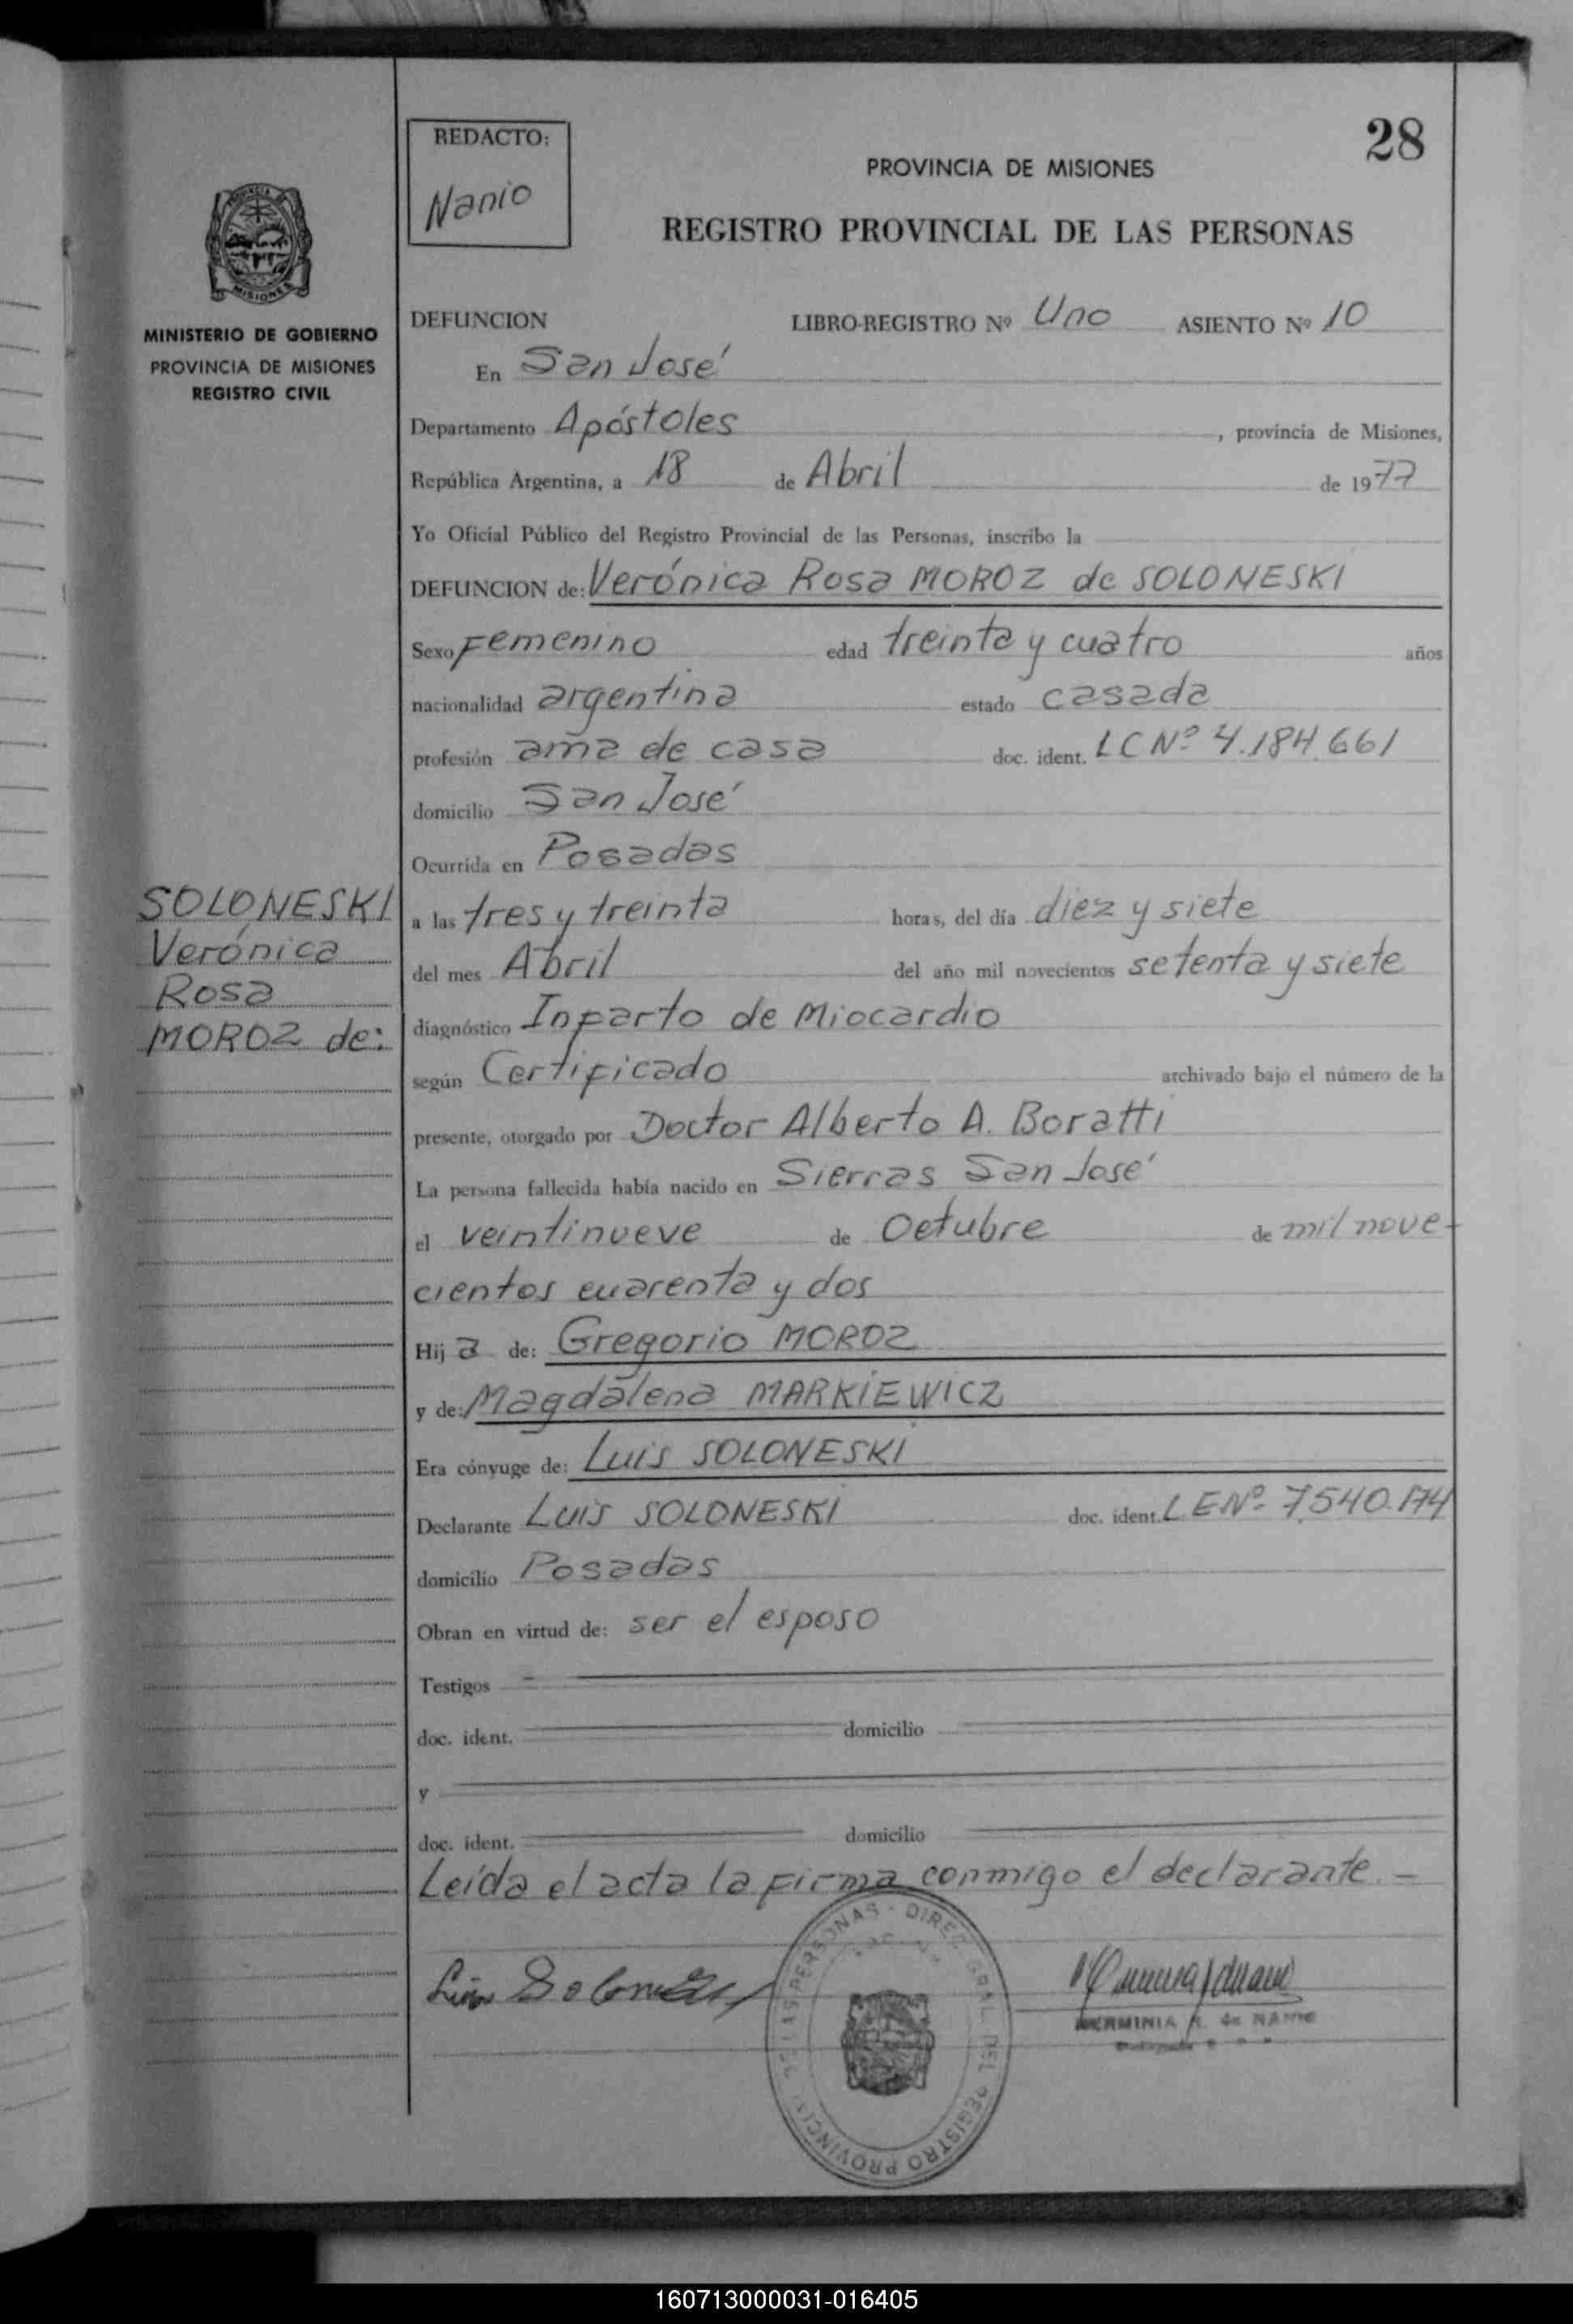 28
REDACTO:
Nanio
PROVINCIA DE MISIONES
REGISTRO PROVINCIAL DE LAS PERSONAS
MISIONES
MINISTERIO DE GOBIERNO
PROVINCIA DE MISIONES
REGISTRO CIVIL
DEFUNCION LIBRO-REGISTRO Nº Uno ASIENTO Nº 10
En San José
Departamento Apóstoles, provincia de Misiones,
República Argentina, a 18 de Abril de 1977
Yo Oficial Público del Registro Provincial de las Personas, inscribo la
DEFUNCION de: Verónica Rosa MOROZ de SOLONESKI
Sexo Femenino edad treinta y cuatro años
nacionalidad argentina estado casada
profesión ama de casa doc. ident. LC Nº 4.184.661
domicilio San José
Ocurrida en Posadas
SOLONESKI
Verónica
Rosa
MOROZ de:
a las tres y treinta horas, del día diez y siete
del mes Abril del año mil novecientos setenta y siete
diagnóstico Infarto de Miocardio
según Certificado archivado bajo el número de la
presente, otorgado por Doctor Alberto A. Boratti
La persona fallecida había nacido en Sierras San José
el veintinueve de Octubre de mil nove-
cientos cuarenta y dos
Hij a de: Gregorio MOROZ
y de: Magdalena MARKIEWICZ
Era cónyuge de: Luis SOLONESKI
Declarante Luis SOLONESKI doc. ident. LE Nº 7.540.174
domicilio Posadas
Obran en virtud de: ser el esposo
Testigos
doc. ident. domicilio
y
doc. ident. domicilio
Leída el acta la firma conmigo el declarante.-
HERMINIA R. de NANIO
160713000031-016405